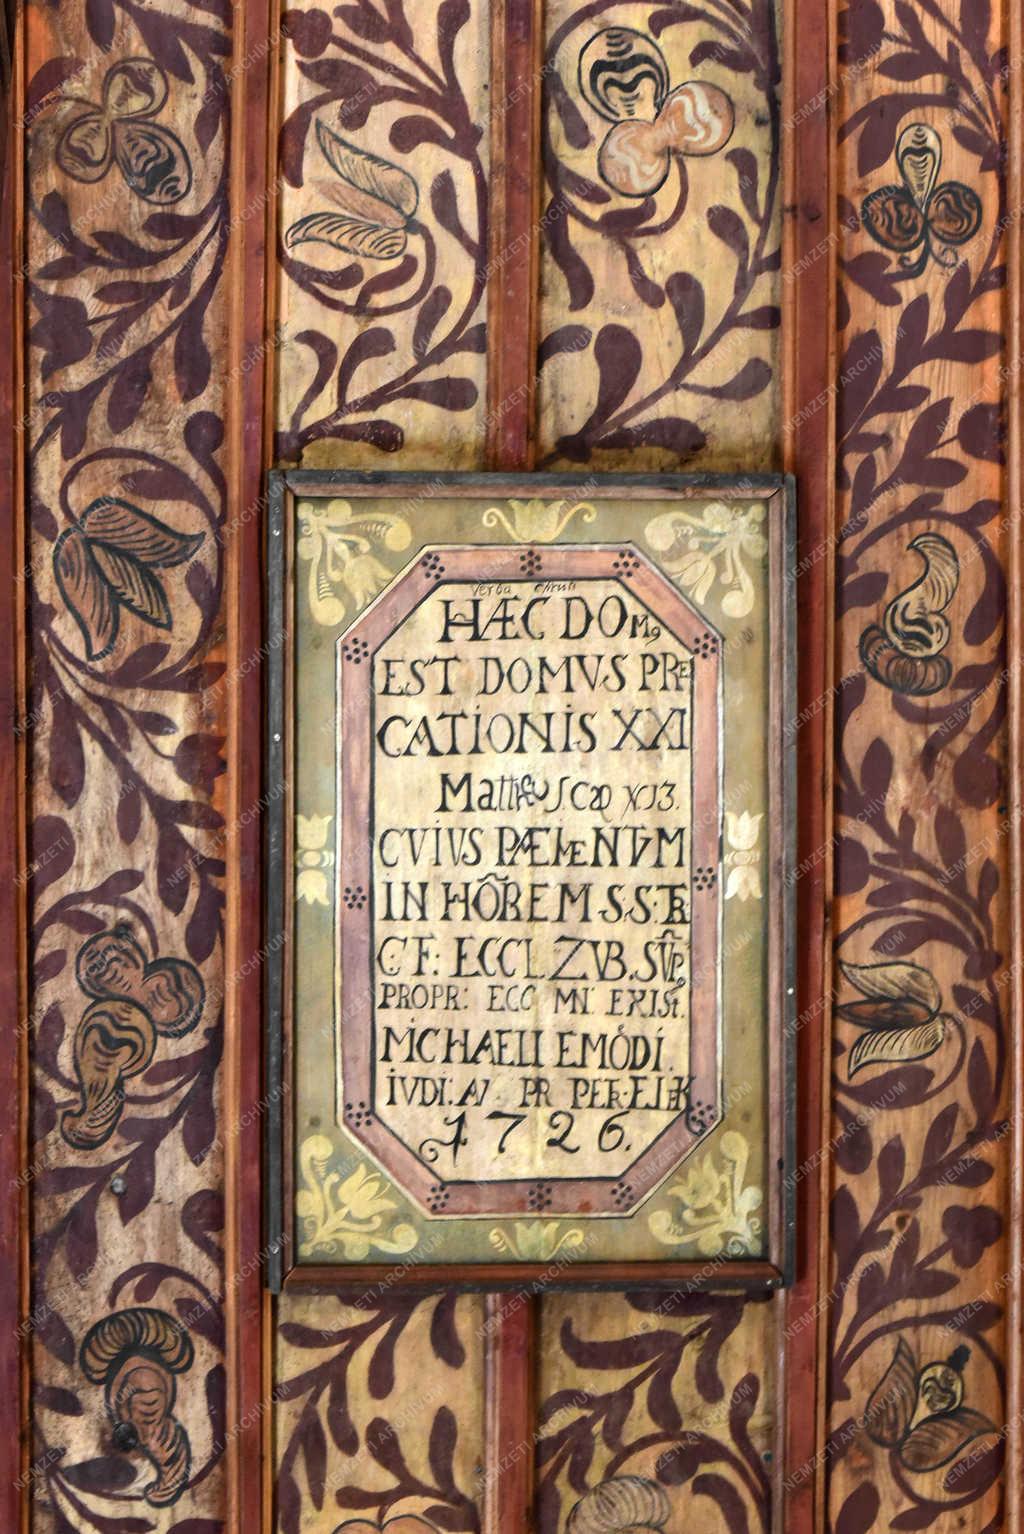 Verba Christi
HÆC DOM9
EST DOMVS PRE
CATIONIS XXI
Mattheus Cap XI3.
CVIVS PÆIMENTVM
IN HÔREM S.S. TR
C F: ECCL ZVB. SVP
PROPR: ECC MN. EXIST.
MICHAELI EMÖDI.
IVDI: AI PR PER. EIEK
1726.
NEMZETI ARCHÍVUM